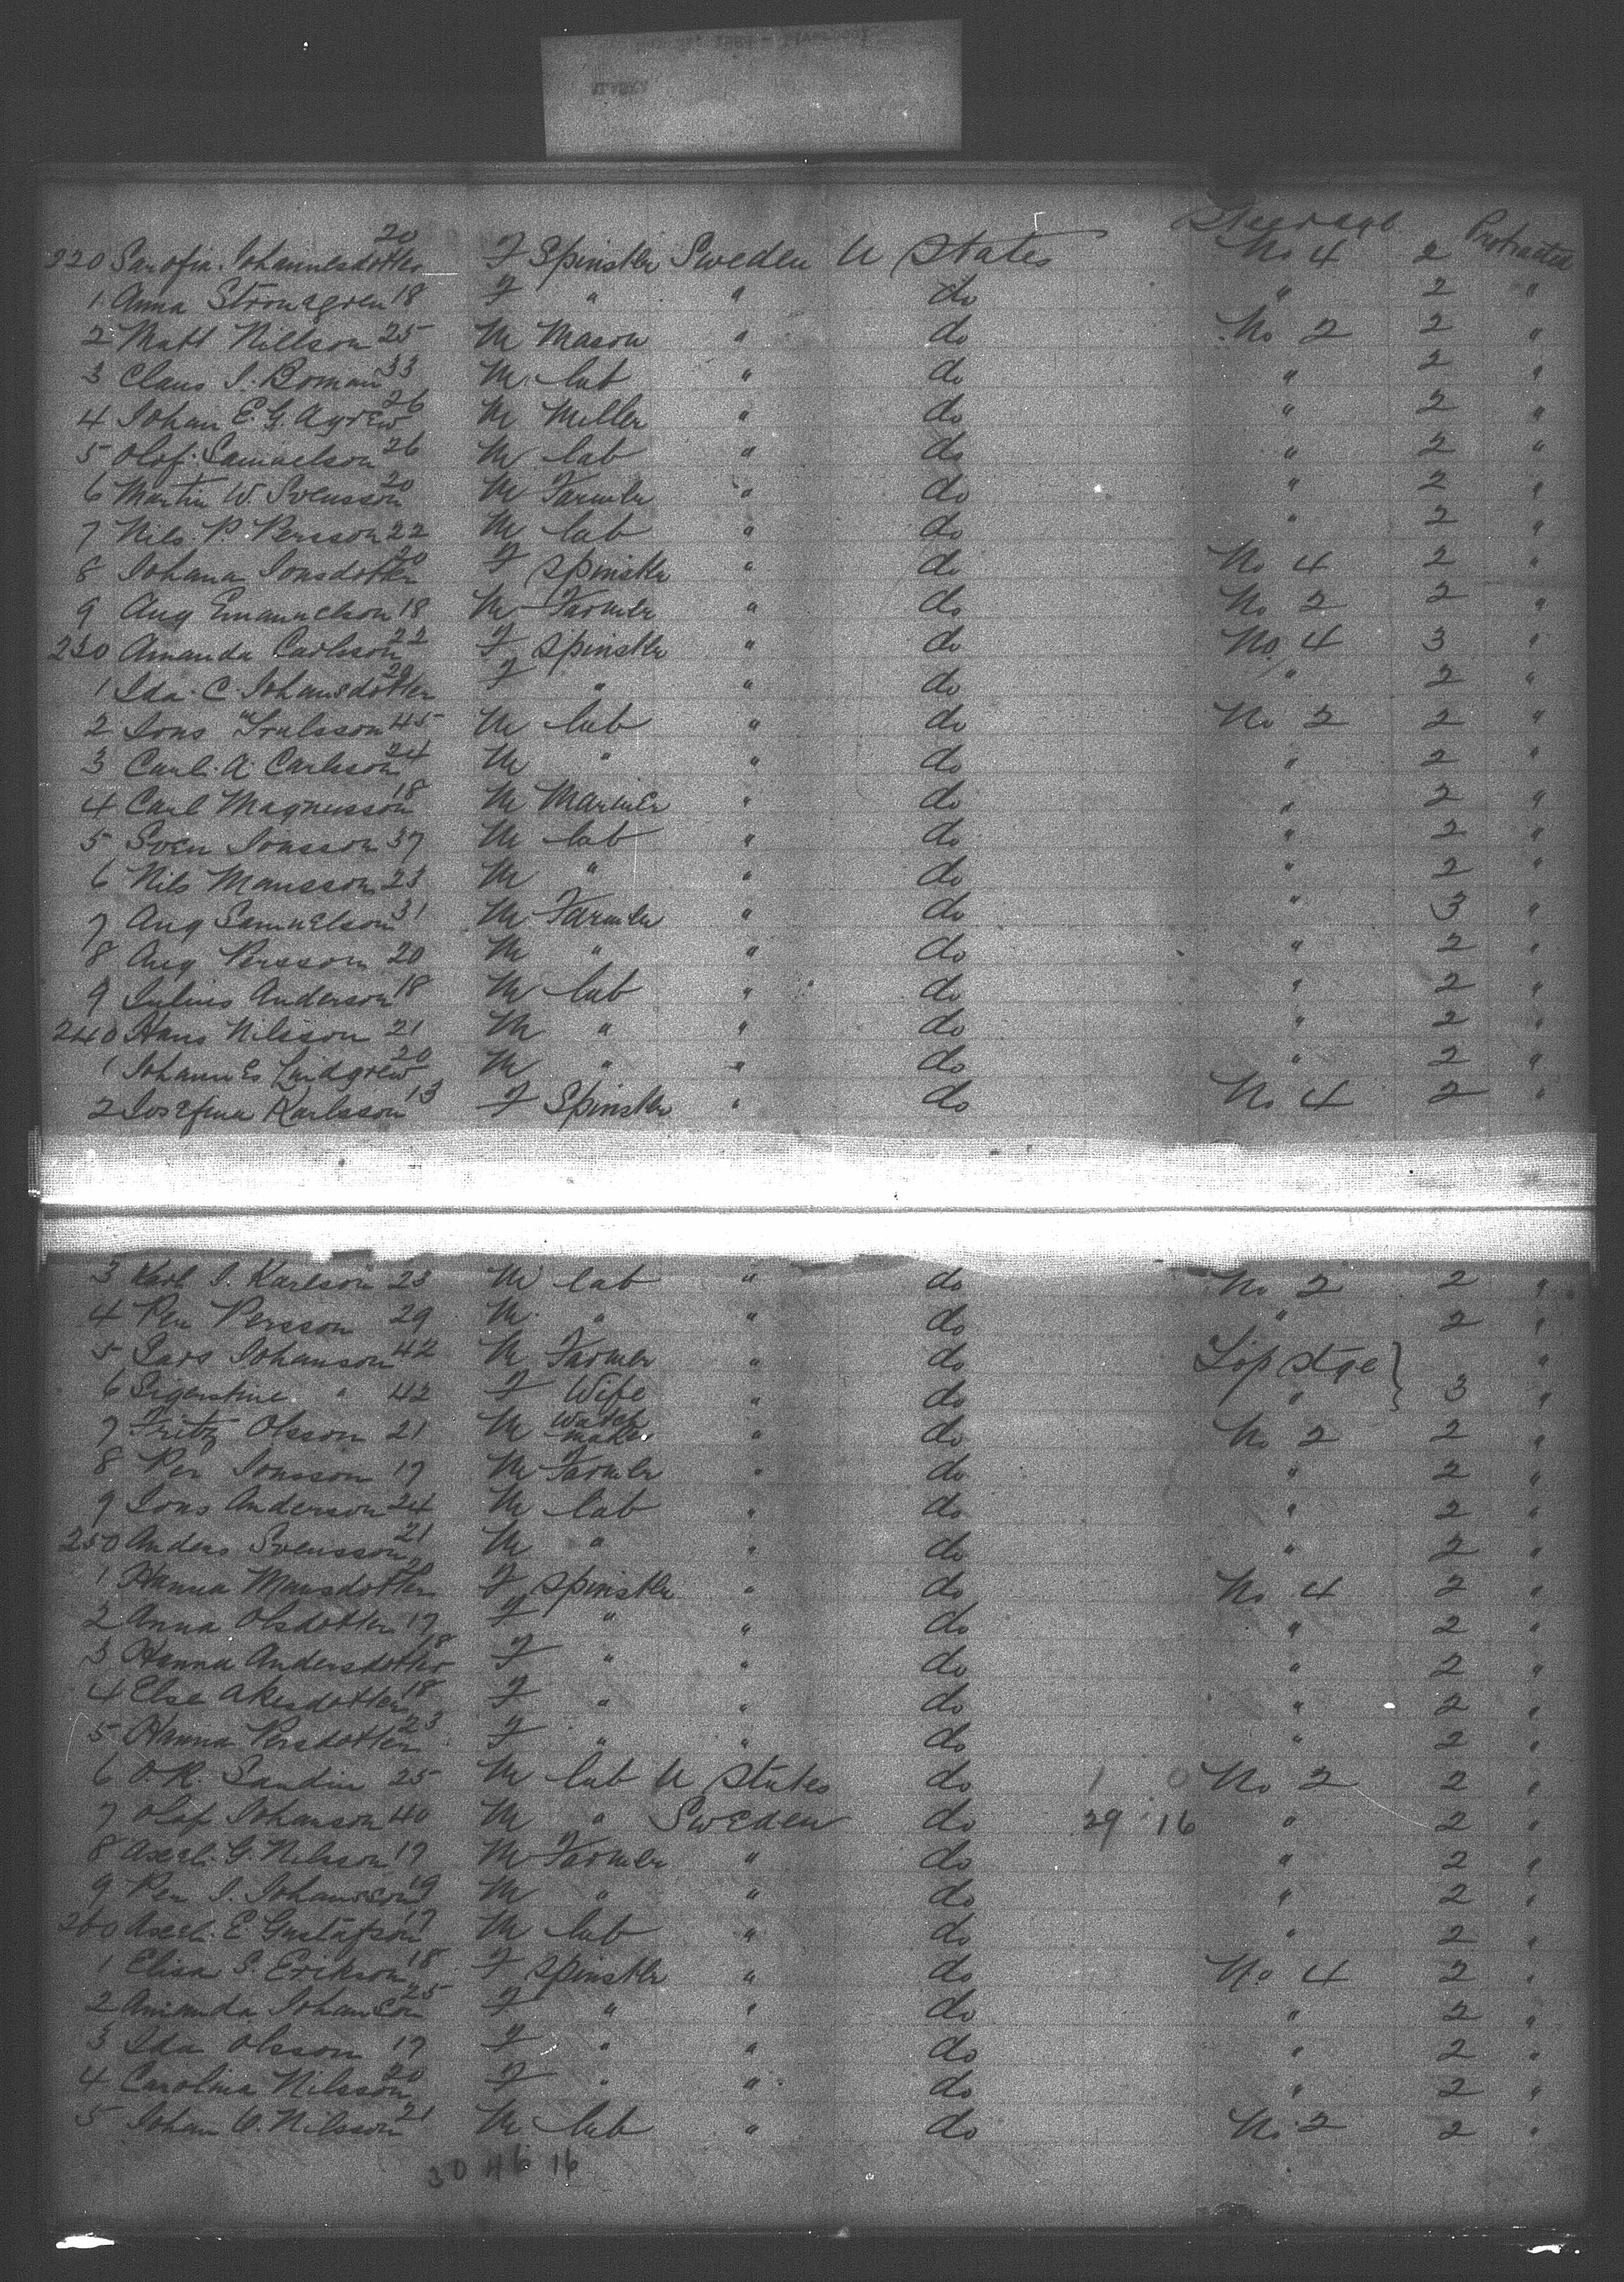 Steerage
220 Sarofia Johannesdotter 20 F Spinster Sweden U States No 4 2 Protracted
1 Anna Stromgren 18 F " " do " 2 "
2 Matt Nillson 25 M Mason " do No 2 2 "
3 Claus I. Boman 33 M lab " do " 2 "
4 Johan E. G. Agrew 26 M Miller " do " 2 "
5 Olof Samuelson 26 M lab " do " 2 "
6 Martin W. Svensson 20 M Farmer " do " 2 "
7 Nils P. Persson 22 M lab " do " 2 "
8 Johana Jonsdotter 20 F Spinster " do No 4 2 "
9 Aug Emanuelson 18 M Farmer " do No 2 2 "
230 Amanda Carlsson 22 F Spinster " do No 4 3 "
1 Ida C. Johansdotter 20 F " " do " 2 "
2 Jons Trulsson 45 M lab " do No 2 2 "
3 Carl A. Carlsson 24 M " " do " 2 "
4 Carl Magnusson 18 M Mariner " do " 2 "
5 Sven Jonsson 37 M lab " do " 2 "
6 Nils Mansson 23 M " " do " 2 "
7 Aug Samuelson 31 M Farmer " do " 3 "
8 Aug Persson 20 M " " do " 2 "
9 Julius Anderson 18 M lab " do " 2 "
240 Hans Nilsson 21 M " " do " 2 "
1 Johannes Lindgrew 20 M " " do " 2 "
2 Josefina Karlsson 13 F Spinster " do No 4 2 "
3 Karl I. Karlson 23 M lab " do No 2 2 "
4 Per Persson 29 M " " do " 2 "
5 Lars Johanson 42 M Farmer " do Lop stge } "
6 Sigerstine " 42 F Wife " do " 3 "
7 Fritz Olsson 21 M Watch maker " do No 2 2 "
8 Per Jonsson 17 M Farmer " do " 2 "
9 Jons Anderson 24 M lab " do " 2 "
250 Anders Svensson 21 M " " do " 2 "
1 Hanna Mansdotter 20 F Spinster " do No 4 2 "
2 Anna Olsdotter 17 F " " do " 2 "
3 Hanna Andersdotter 18 F " " do " 2 "
4 Else Akesdotter 18 F " " do " 2 "
5 Hanna Persdotter 23 F " " do " 2 "
6 O. R. Sandin 25 M lab U States do 1 0 No 2 2 "
7 Olof Johanson 40 M " Sweden do 29 16 " 2 "
8 Axel G. Nelsson 17 M Farmer " do " 2 "
9 Per I. Johansson 19 M " " do " 2 "
260 Axel E. Gustafson 17 M lab " do " 2 "
1 Elisa S. Erikson 18 F Spinster " do No 4 2 "
2 Amanda Johanson 25 F " " do " 2 "
3 Ida Olsson 17 F " " do " 2 "
4 Carolina Nilsson 20 F " " do " 2 "
5 Johan O. Nilsson 21 M lab " do No 2 2 "
30 46 16